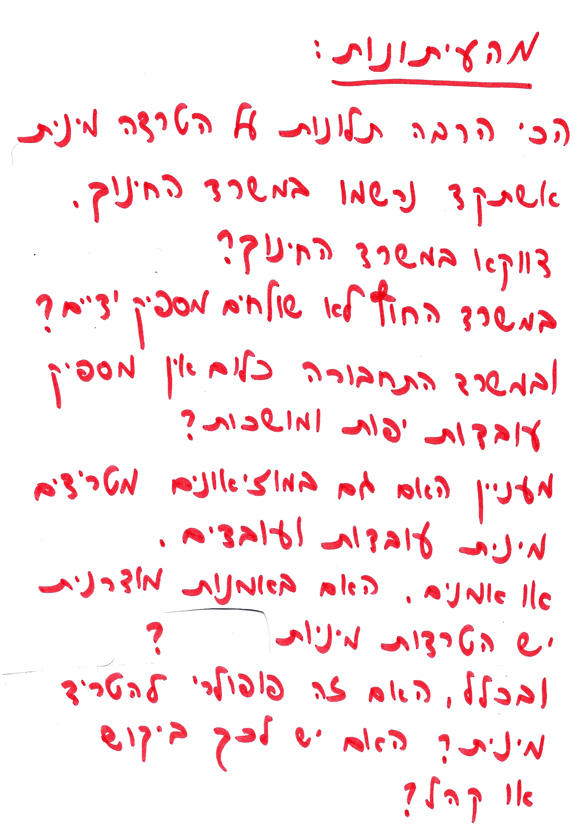 מהעיתונות:
הכי הרבה תלונות על הטרדה מינית
אשתקד נרשמו במשרד החינוך.
דווקא במשרד החינוך?
במשרד החוץ לא שולחים מספיק ידיים?
ובמשרד התחבורה כלום אין מספיק
עובדות יפות ומושכות?
מעניין האם גם במוזיאונים מטרידים
מינית עובדות ועובדים.
או אומנים. האם באמנות מודרנית
יש הטרדות מיניות ?
ובכלל, האם זה פופולרי להטריד
מינית? האם יש לכך ביקוש
או קהל?